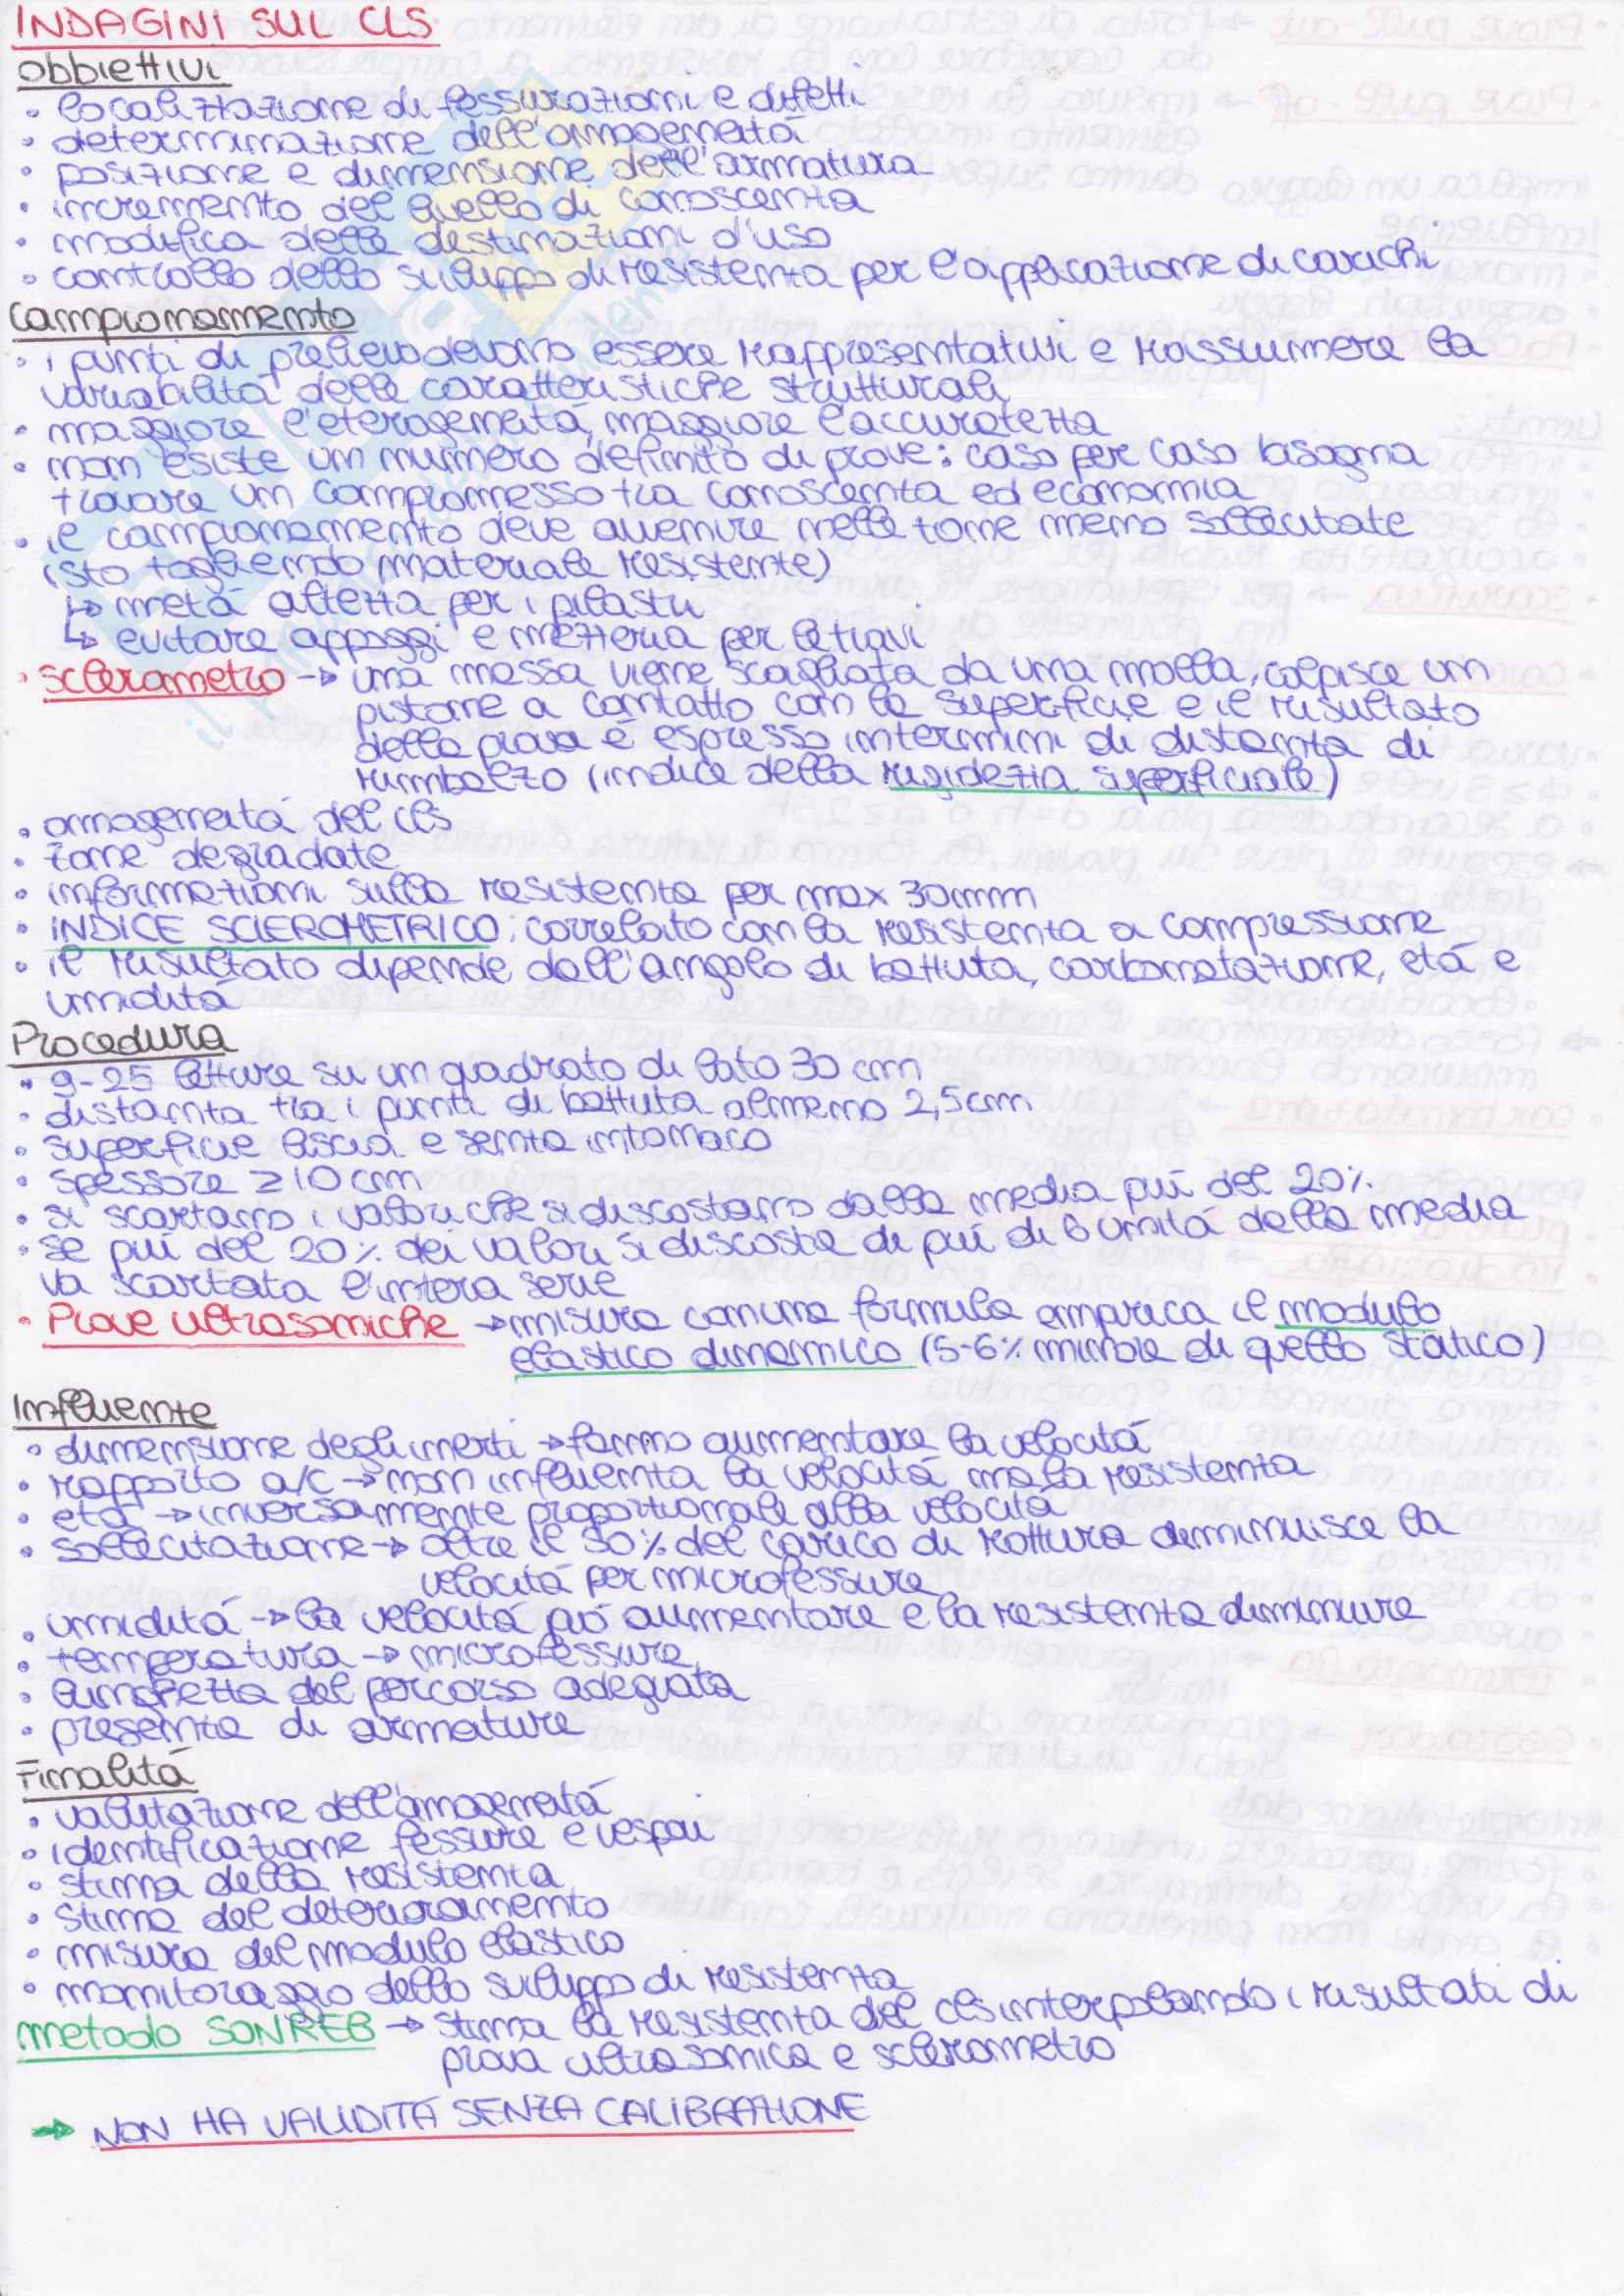 INDAGINI SUL CLS
obbiettivi
• localizzazione di fessurazioni e difetti
• determinazione dell'omogeneitá
• posizione e dimensione dell'armatura
• incremento del livello di conoscenza
• modifica delle destinazioni d'uso
• controllo dello sviluppo di resistenza per l'applicazione di carichi
campionamento
• i punti di prelievo devono essere rappresentativi e riassumere la
variabilitá delle caratteristiche strutturali
• maggiore l'eterogeneitá, maggiore l'accuratezza
• non esiste un numero definito di prove: caso per caso bisogna
trovare un compromesso tra conoscenza ed economia
• il campionamento deve avvenire nelle zone meno sollecitate
(sto togliendo materiale resistente)
↳ metá altezza per i pilastri
↳ evitare appoggi e mezzeria per le travi
• sclerometro → una massa viene scagliata da una molla, colpisce un
pistone a contatto con la superficie e il risultato
della prova é espresso in termini di distanza di
rimbalzo (indice della rigidezza superficiale)
• omogeneitá del cls
• zone degradate
• informazioni sulla resistenza per max 30mm
• INDICE SCLEROMETRICO: correlato con la resistenza a compressione
• il risultato dipende dall'angolo di battuta, carbonatazione, etá e
umiditá
Procedura
• 9-25 letture su un quadrato di lato 30 cm
• distanza tra i punti di battuta almeno 2,5cm
• superficie liscia e senza intonaco
• spessore ≥ 10 cm
• si scartano i valori che si discostano dalla media piú del 20%
• se piú del 20% dei valori si discosta di piú di 6 unitá della media
va scartata l'intera serie
• Prove ultrasoniche → misura con una formula empirica il modulo
elastico dinamico (5-6% minore di quello statico)
Influenze
• dimensione degli inerti → fanno aumentare la velocitá
• rapporto a/c → non influenza la velocitá ma la resistenza
• etá → inversamente proporzionale alla velocitá
• sollecitazione → oltre il 50% del carico di rottura diminuisce la
velocitá per microfessure
• umiditá → la velocitá puó aumentare e la resistenza diminuire
• temperatura → microfessure
• lunghezza del percorso adeguata
• presenza di armature
Finalitá
• valutazione dell'omogeneitá
• identificazione fessure e vespai
• stima della resistenza
• stima del deterioramento
• misura del modulo elastico
• monitoraggio dello sviluppo di resistenza
metodo SONREB → stima la resistenza del cls interpolando i risultati di
prova ultrasonica e sclerometro
→ NON HA VALIDITÁ SENZA CALIBRAZIONE